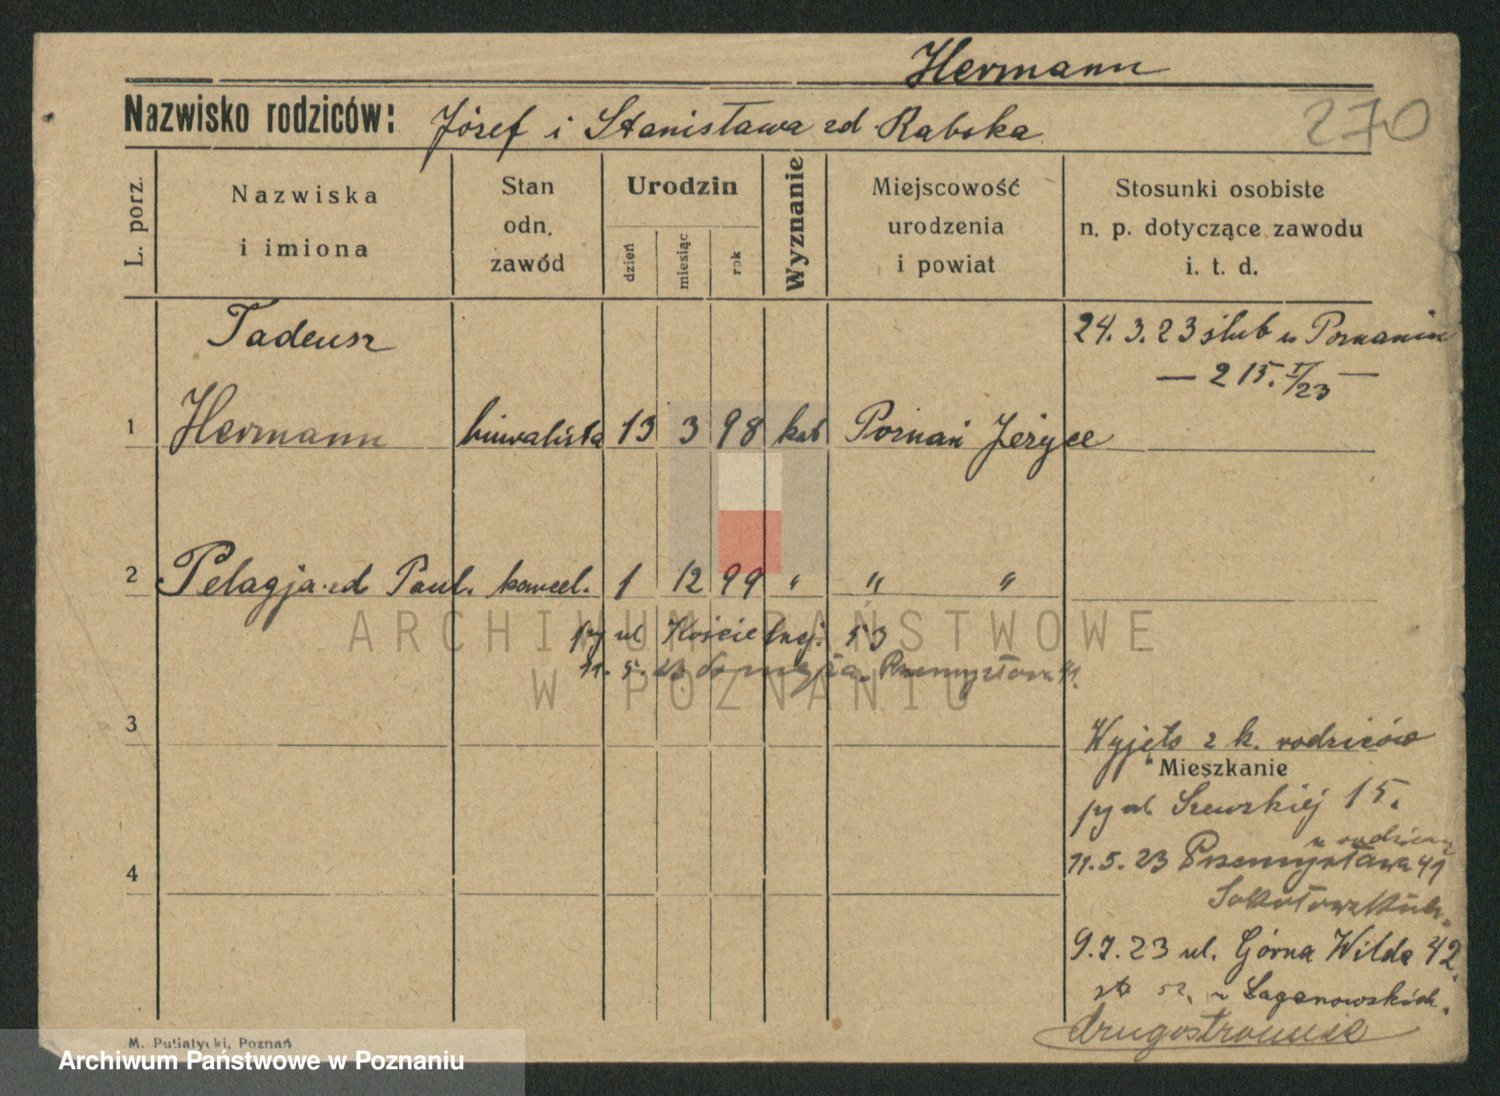 Hermann
Nazwisko rodziców: Józef i Stanisława zd Rabska
270
L. porz.
Nazwiska
i imiona
Stan
odn.
zawód
Urodzin
dzień
miesiąc
rok
Wyznanie
Miejscowość
urodzenia
i powiat
Stosunki osobiste
n. p. dotyczące zawodu
i. t. d.
Tadeusz
24. 3. 23 ślub w Poznaniu
— 215. I/23 —
1 Hermann biuralista 13 3 98 kat Poznań Jeżyce
2 Pelagja zd Paul. koncel. 1 12 99 " " "
ARCHIWUM PAŃSTWOWE
W POZNANIU
py ul Kościelnej. 53
11. 5. 23 do męża Przemysłowa 41.
3
Wyjęto z k. rodziców
Mieszkanie
py ul Szewskiej 15.
u rodziców
11. 5. 23 Przemysława 41
4
9. 7. 23 ul. Górna Wilda 42.
u Łaganowskich.
drugostronnie
M. Putiatycki, Poznań
Archiwum Państwowe w Poznaniu